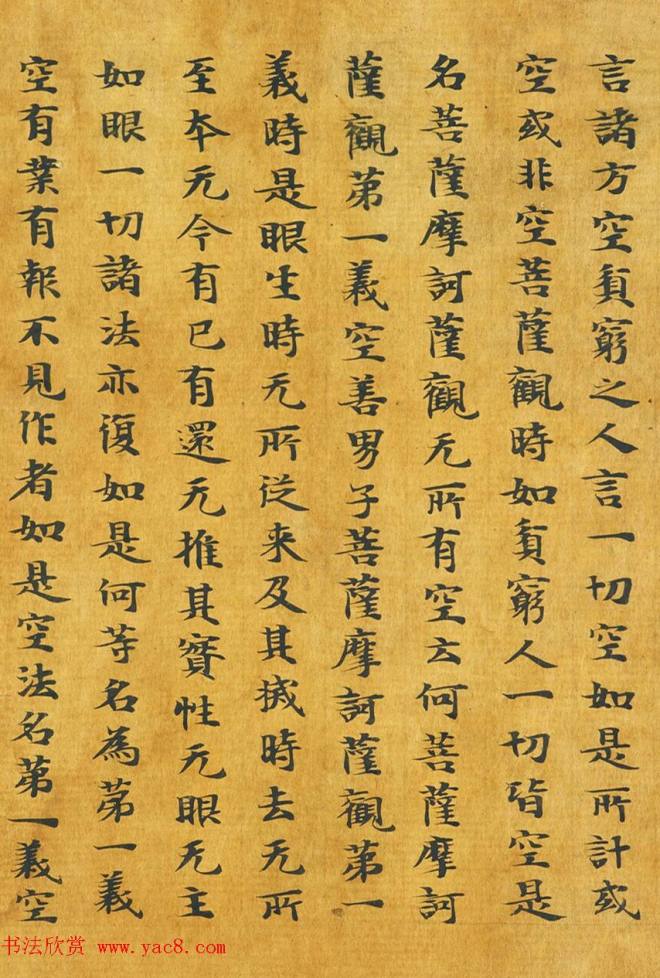 言諸方空貧窮之人言一切空如是所計或
空或非空菩薩觀時如貧窮人一切皆空是
名菩薩摩訶薩觀无所有空云何菩薩摩訶
薩觀第一義空善男子菩薩摩訶薩觀第一
義時是眼生時无所從来及其烕時去无所
至本无今有已有還无推其實性无眼无主
如眼一切諸法亦復如是何等名為第一義
空有業有報不見作者如是空法名第一義空
书法欣赏 www.yac8.com